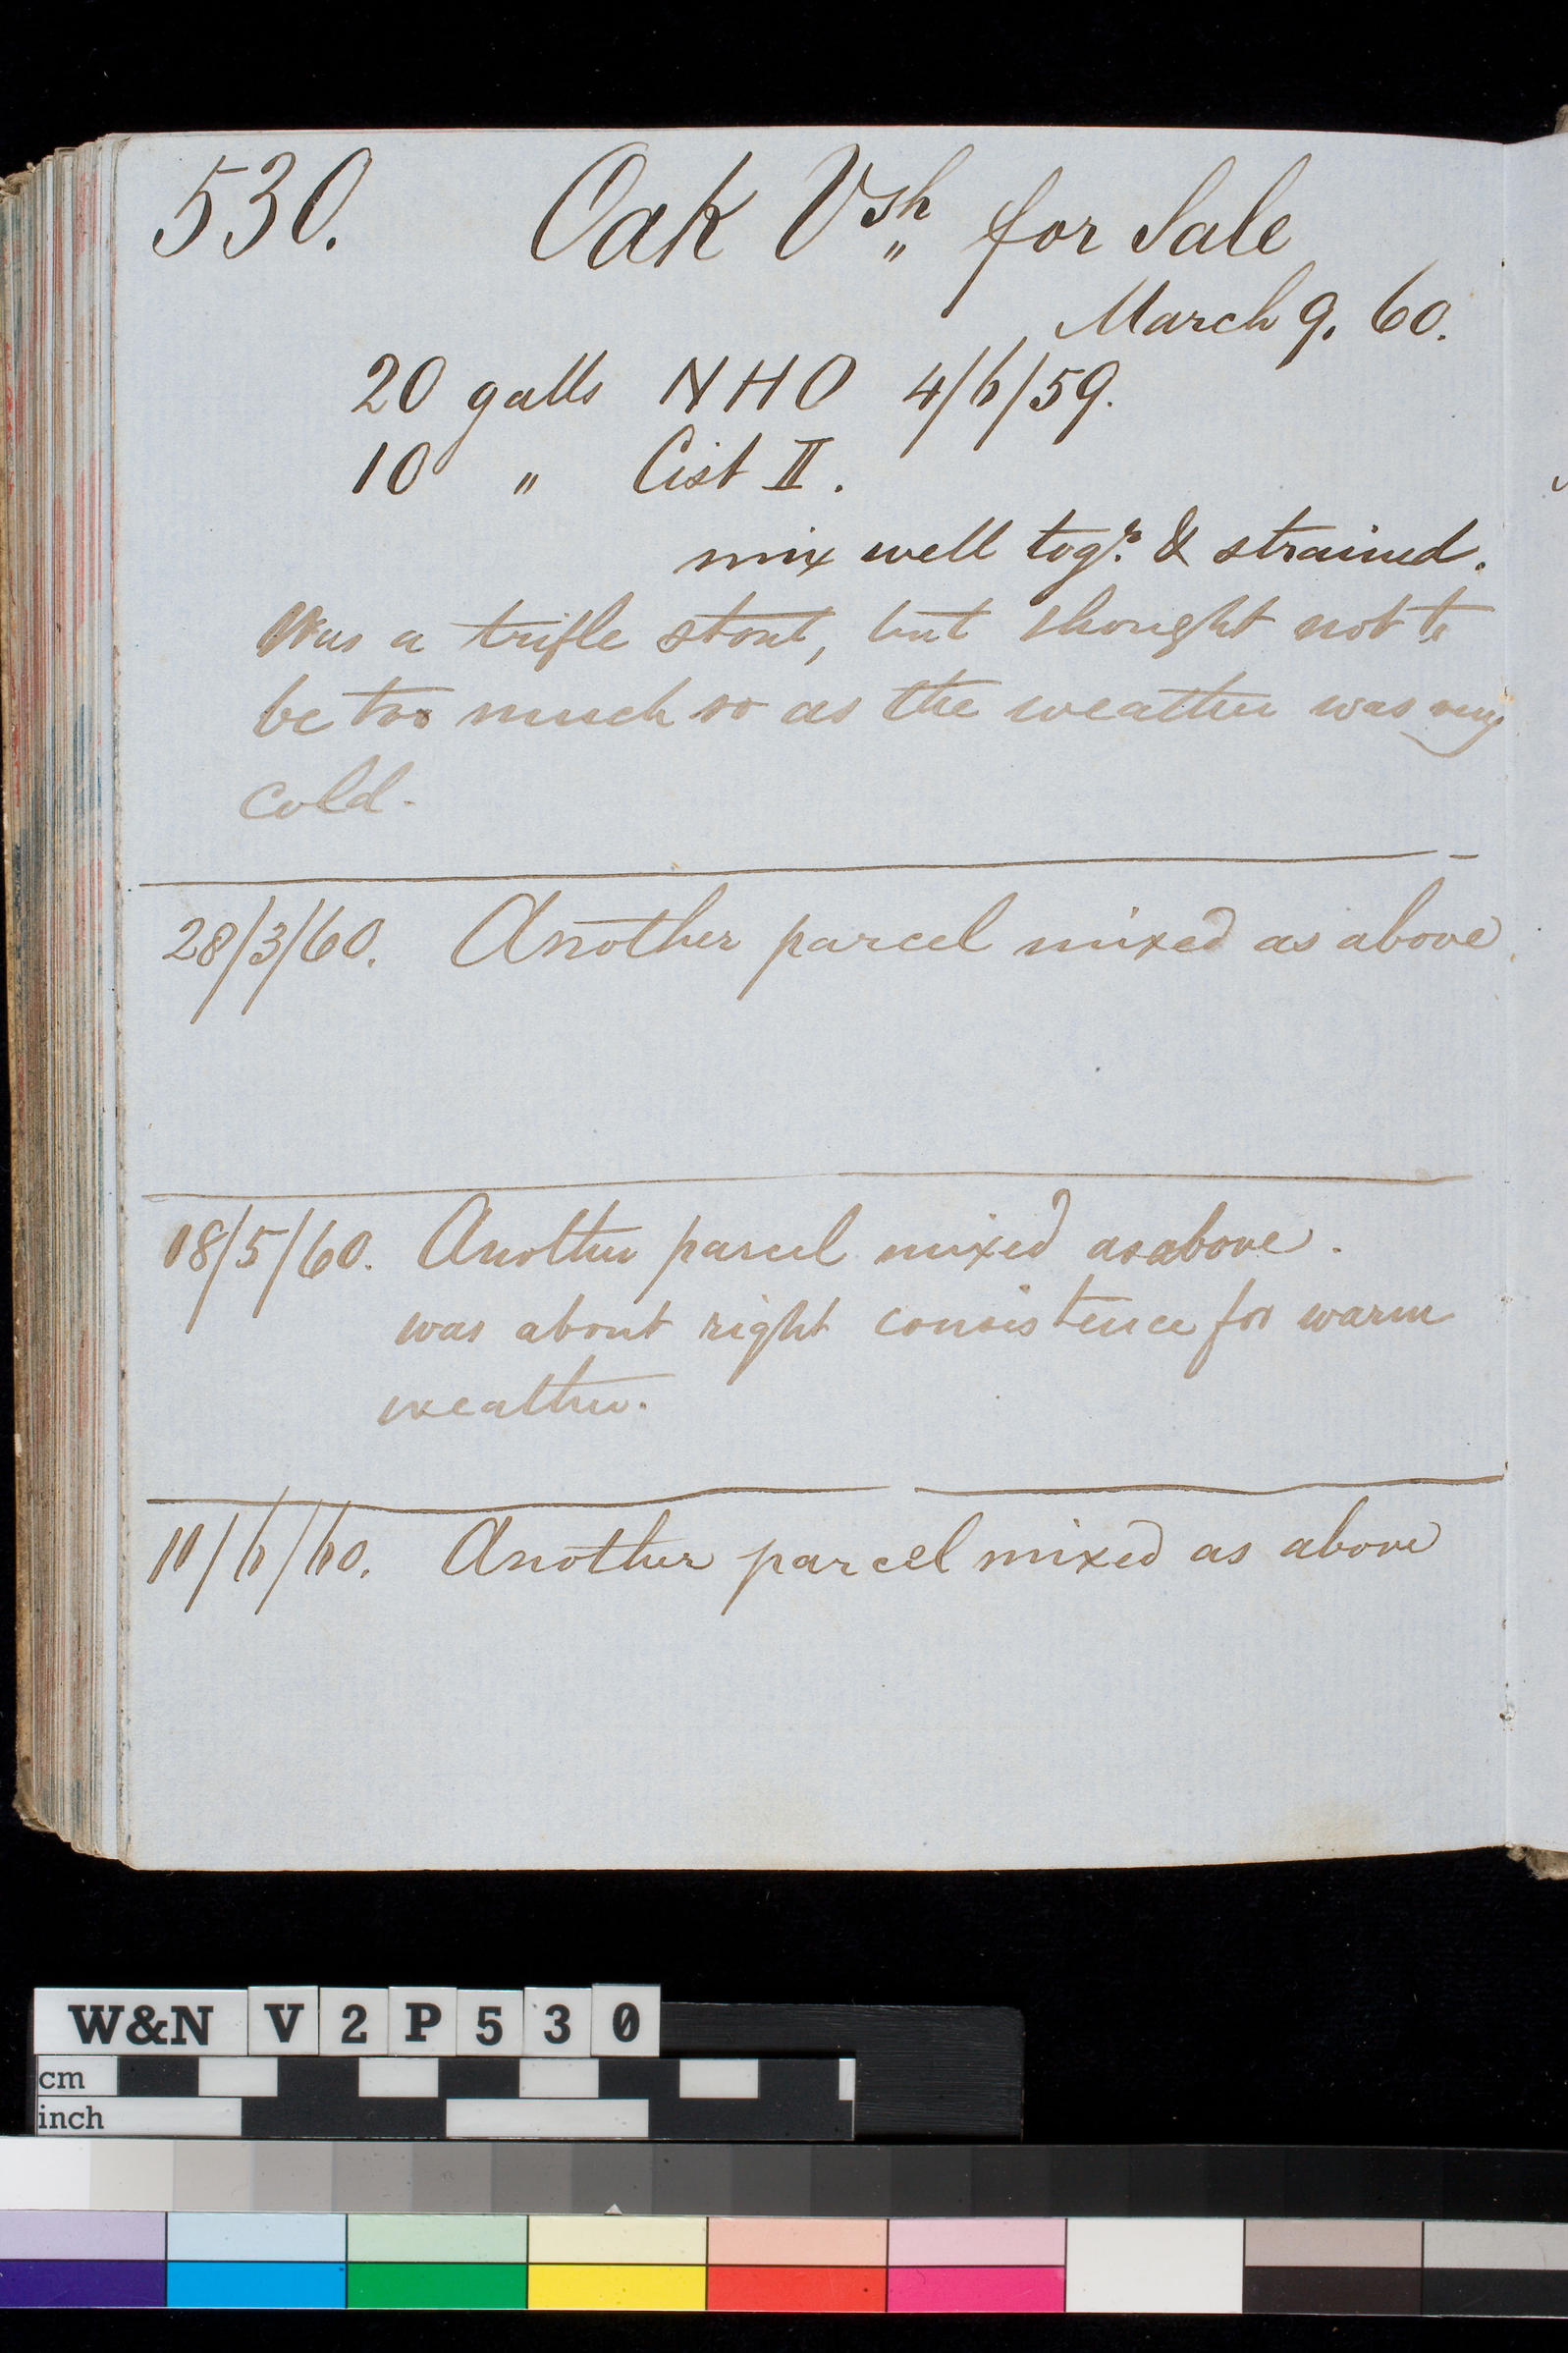 530. Oak Vsh„ for Sale
March 9. 60.
20 galls NHO 4/6/59.
10 „ Cist II.
mix well togr. & strained.
Was a trifle stout, but thought not to
be too much so as the weather was very
cold.
28/3/60. Another parcel mixed as above
18/5/60. Another parcel mixed as above.
was about right consistence for warm
weather.
11/6/60. Another parcel mixed as above
W&N V2P530
cm
inch